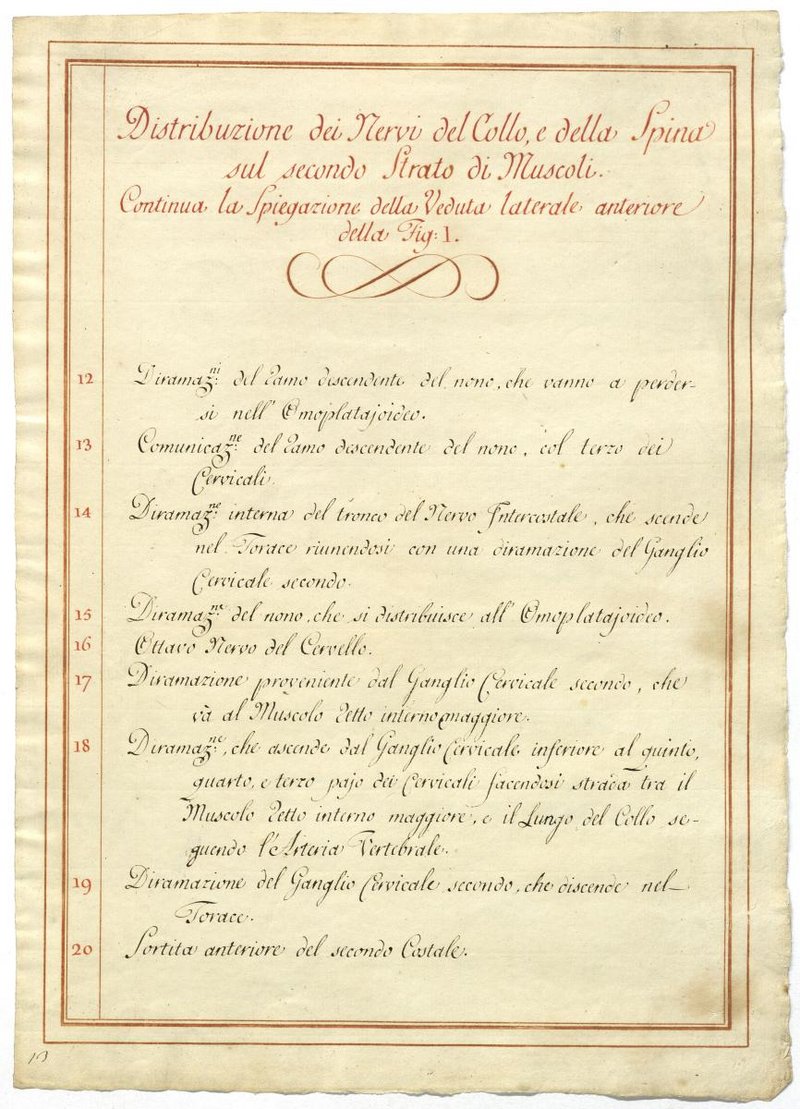 Distribuzione dei Nervi del Collo, e della Spina
sul secondo Strato di Muscoli.
Continua la Spiegazione della Veduta laterale anteriore
della Fig: I.
12 Diramaz:ni del Ramo discendente del nono, che vanno a perder-
si nell' Omoplatajoideo.
13 Comunicaz:ne del Ramo descendente del nono, col terzo dei
Cervicali.
14 Diramaz:ne interna del tronco del Nervo Intercostale, che scende
nel Torace riunendosi con una diramazione del Ganglio
Cervicale secondo.
15 Diramaz:ne del nono, che si distribuisce all' Omoplatajoideo.
16 Ottavo Nervo del Cervello.
17 Diramazione proveniente dal Ganglio Cervicale secondo, che
và al Muscolo Retto interno maggiore.
18 Diramaz:ne, che ascende dal Ganglio Cervicale inferiore al quinto,
quarto, e terzo pajo dei Cervicali facendosi strada tra il
Muscolo Retto interno maggiore, e il Lungo del Collo se-
guendo l'Arteria Vertebrale.
19 Diramazione del Ganglio Cervicale secondo, che discende nel
Torace.
20 Sortita anteriore del secondo Costale.